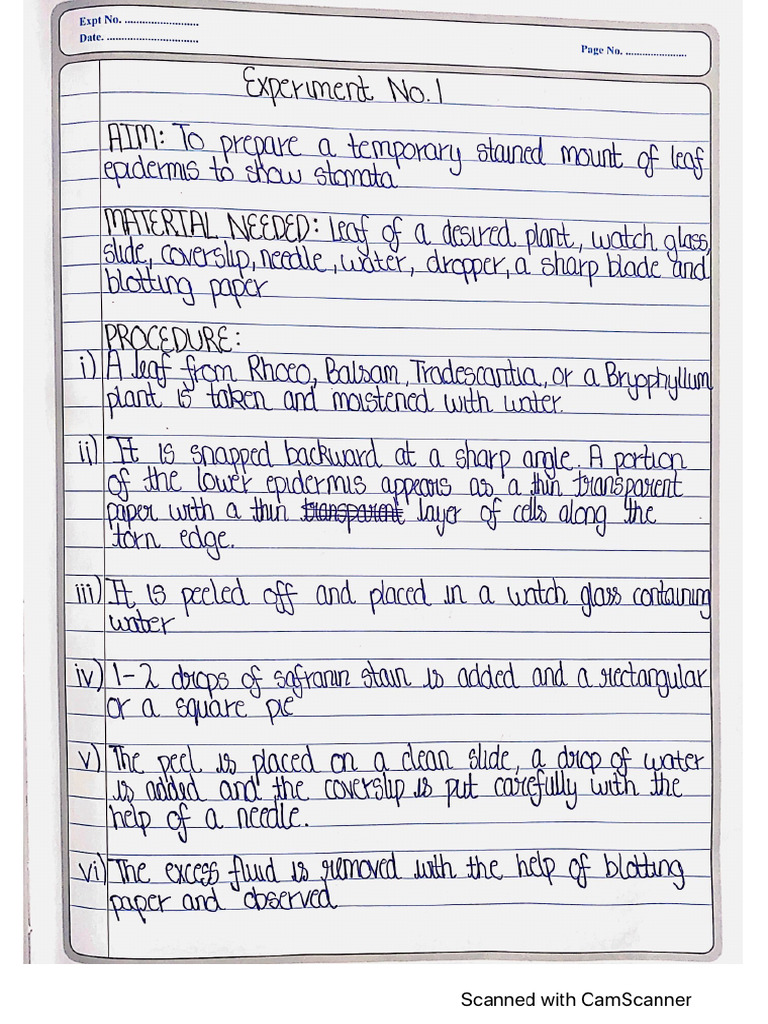 Expt No. ............................
Date. ..................................
Page No. ......................
Experiment No.1
AIM: To prepare a temporary stained mount of leaf
epidermis to show stomata
MATERIAL NEEDED: leaf of a desired plant, watch glass,
slide, coverslip, needle, water, dropper, a sharp blade and
blotting paper
PROCEDURE:
i) A leaf from Rhoeo, Balsam, Tradescantia, or a Bryophyllum
plant is taken and moistened with water.
ii) It is snapped backward at a sharp angle. A portion
of the lower epidermis appears as a thin transparent
paper with a thin transparent layer of cells along the
torn edge.
iii) It is peeled off and placed in a watch glass containing
water
iv) 1-2 drops of safranin stain is added and a rectangular
or a square pie
v) The peel is placed on a clean slide, a drop of water
is added and the coverslip is put carefully with the
help of a needle.
vi) The excess fluid is removed with the help of blotting
paper and observed
Scanned with CamScanner